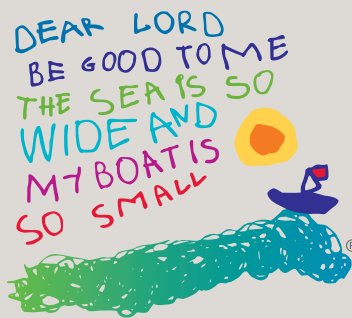 DEAR LORD
BE GOOD TO ME
THE SEA IS SO
WIDE AND
MY BOAT IS
SO SMALL
®